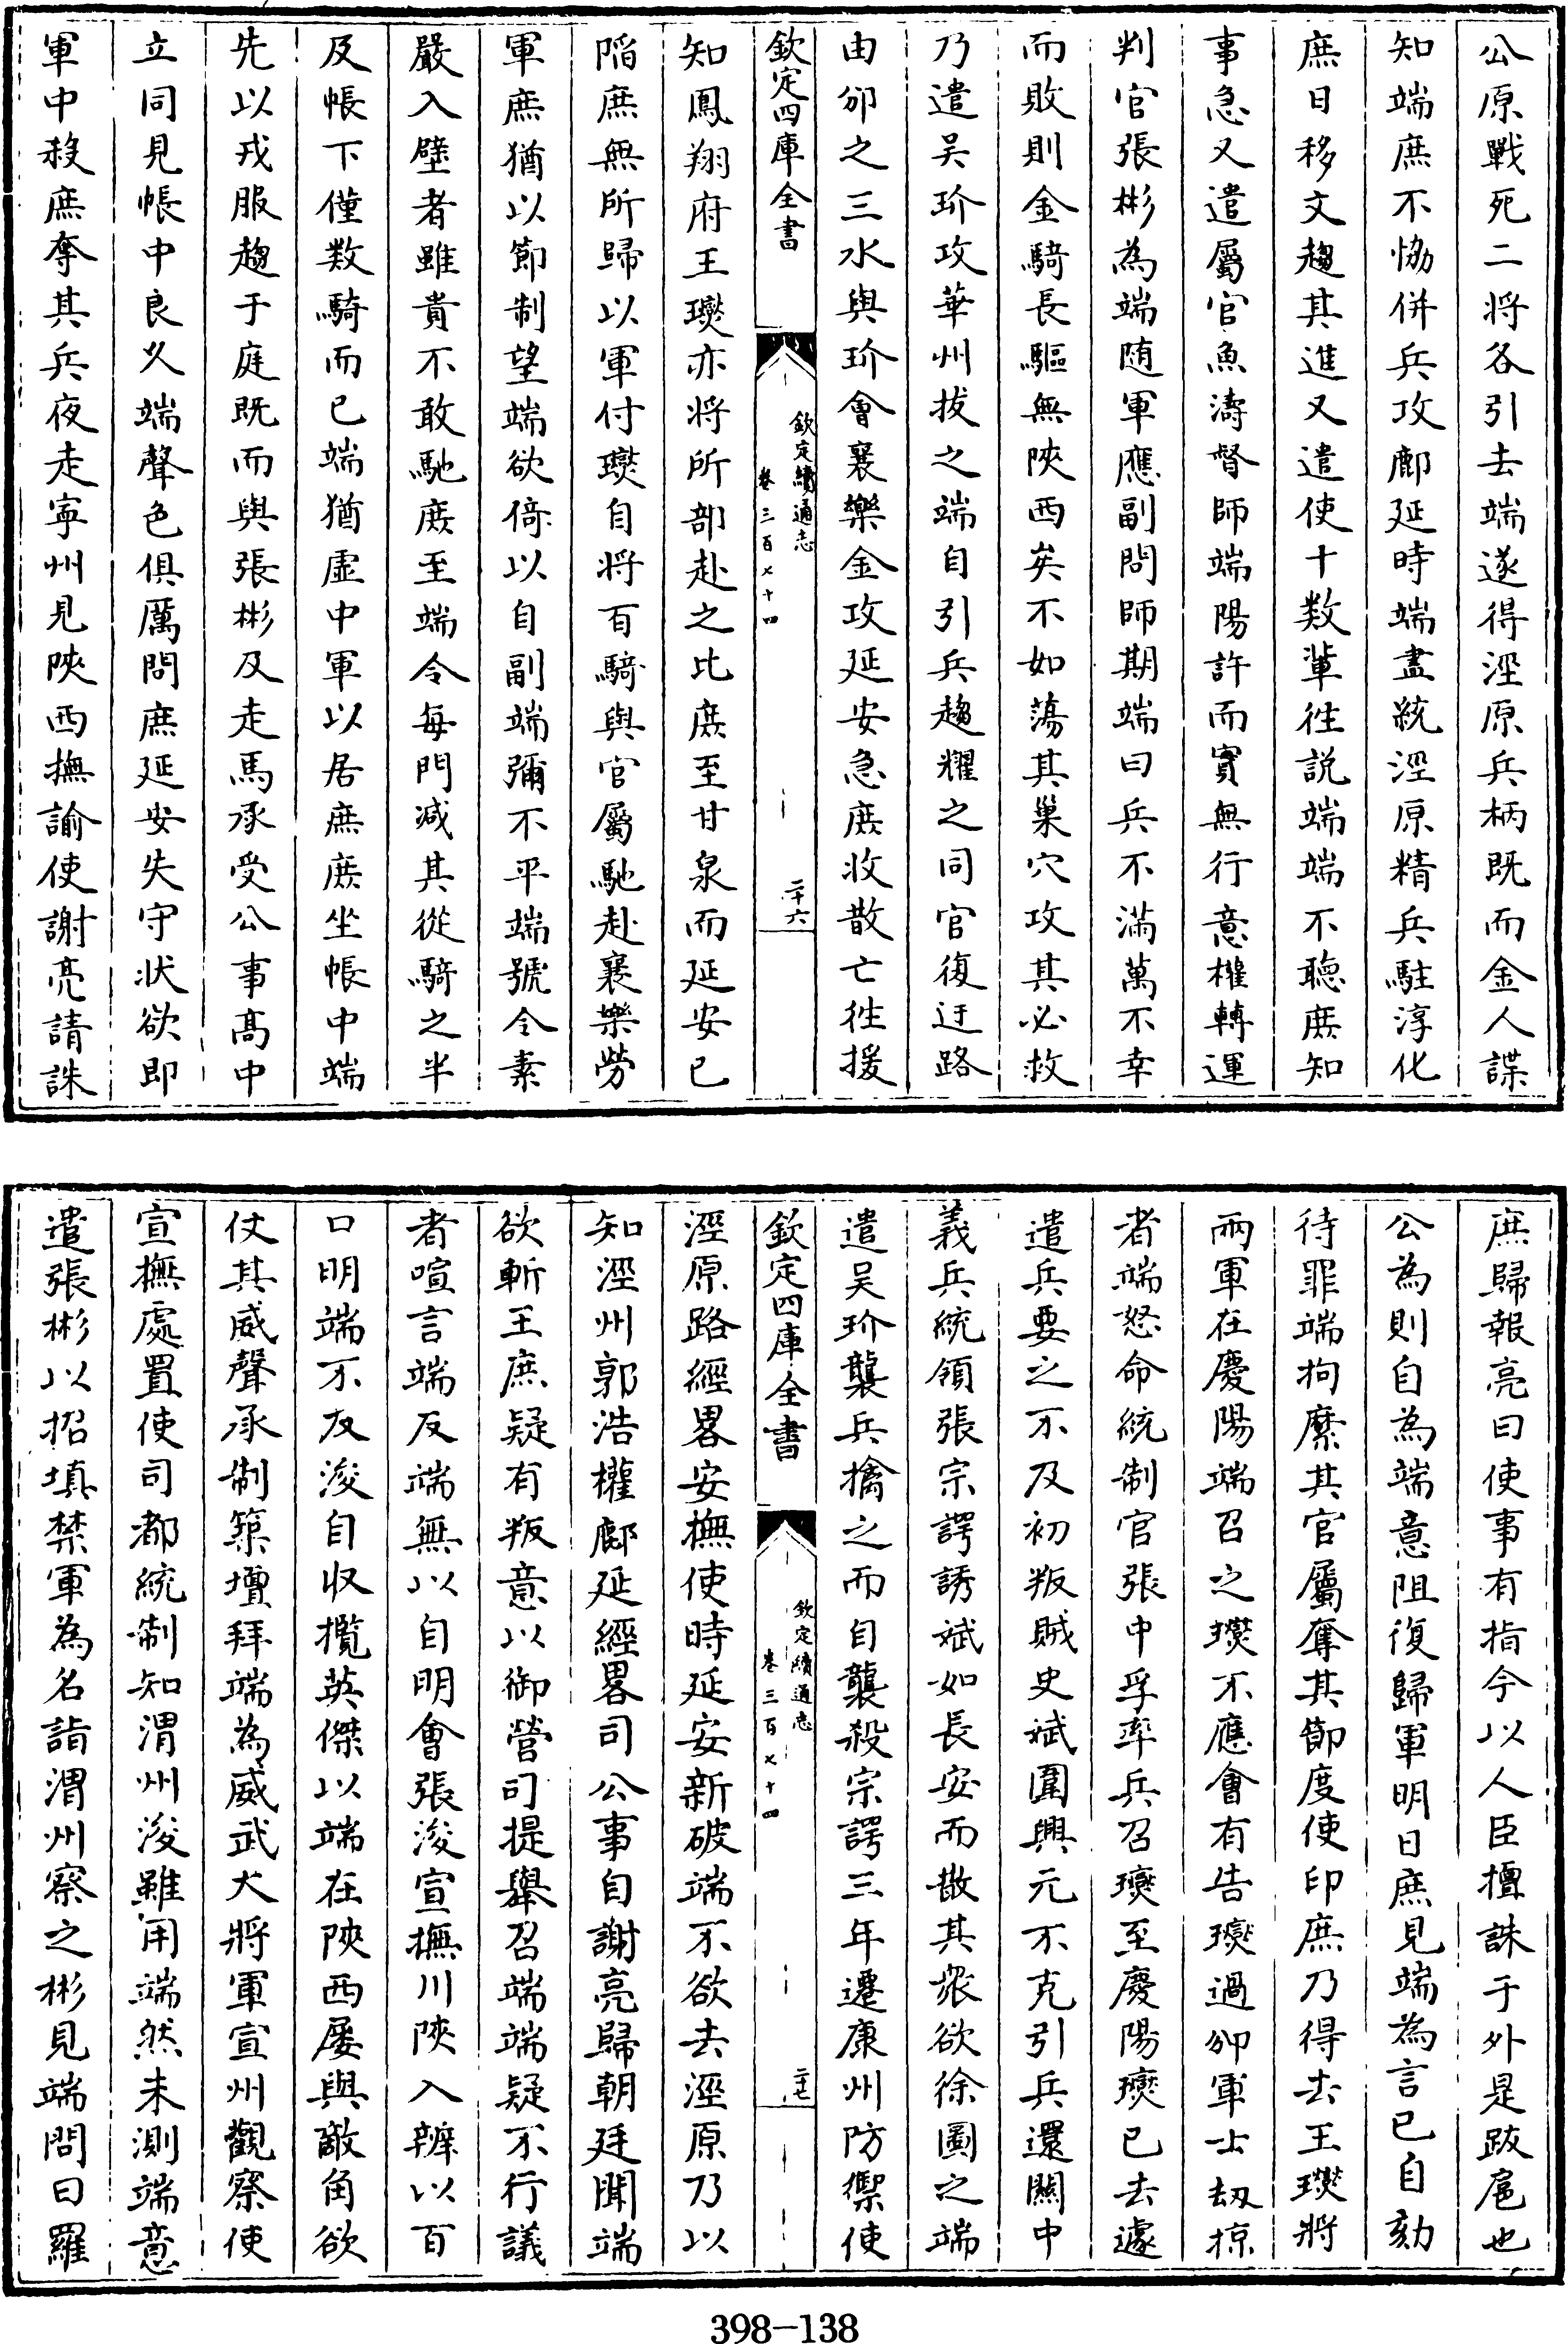 公原戰死二將各引去端遂得涇原兵柄既而金人諜
知端庶不恊併兵攻鄜延時端盡統涇原精兵駐淳化
庶日移文趨其進又遣使十數輩往說端端不聽庶知
事急又遣屬官魚濤督師端陽許而實無行意權轉運
判官張彬為端隨軍應副問師期端曰兵不滿萬不幸
而敗則金騎長驅無陜西矣不如蕩其巢穴攻其必救
乃遣吳玠攻華州拔之端自引兵趨耀之同官復迂路
由邠之三水與玠會襄樂金攻延安急庶收散亡往援
欽定四庫全書
欽定續通志
卷三百七十四
二十六
知鳳翔府王𤫉亦將所部赴之比庶至甘泉而延安已
陷庶無所歸以軍付𤫉自將百騎與官屬馳赴襄樂勞
軍庶猶以節制望端欲倚以自副端彌不平端號令素
嚴入壁者雖貴不敢馳庶至端令每門減其從騎之半
及帳下僅數騎而已端猶虛中軍以居庶庶坐帳中端
先以戎服趨于庭既而與張彬及走馬承受公事髙中
立同見帳中良久端聲色俱厲問庶延安失守狀欲即
軍中殺庶奪其兵夜走寧州見陜西撫諭使謝亮請誅
庶歸報亮曰使事有指今以人臣擅誅于外是跋扈也
公為則自為端意阻復歸軍明日庶見端為言已自劾
待罪端拘縻其官屬奪其節度使印庶乃得去王𤫉將
兩軍在慶陽端召之𤫉不應會有告𤫉過邠軍士劫掠
者端怒命統制官張中孚率兵召𤫉至慶陽𤫉已去遽
遣兵要之不及初叛賊史斌圍興元不克引兵還關中
義兵統領張宗諤誘斌如長安而散其衆欲徐圖之端
遣吳玠襲兵擒之而自襲殺宗諤三年遷康州防禦使
欽定四庫全書
欽定續通志
卷三百七十四
二十七
涇原路經畧安撫使時延安新破端不欲去涇原乃以
知涇州郭浩權鄜延經畧司公事自謝亮歸朝廷聞端
欲斬王庶疑有叛意以御營司提舉召端端疑不行議
者喧言端反端無以自明會張浚宣撫川陜入辨以百
口明端不反浚自收攬英傑以端在陜西屢與敵角欲
仗其威聲承制築壇拜端為威武大將軍宣州觀察使
宣撫處置使司都統制知渭州浚雖用端然未測端意
遣張彬以招填禁軍為名詣渭州察之彬見端問曰羅
398-138